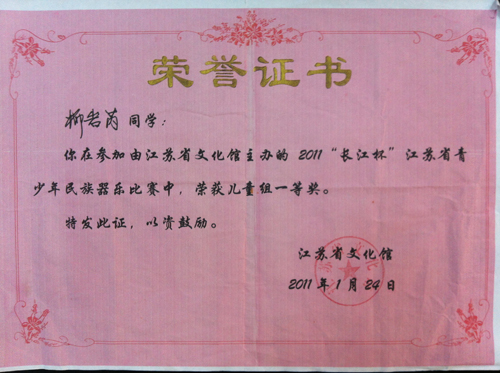 荣誉证书
柳若芮 同学：
你在参加由江苏省文化馆主办的 2011 “长江杯” 江苏省青
少年民族器乐比赛中，荣获儿童组一等奖。
特发此证，以资鼓励。
江苏省文化馆
2011 年 1 月 24 日